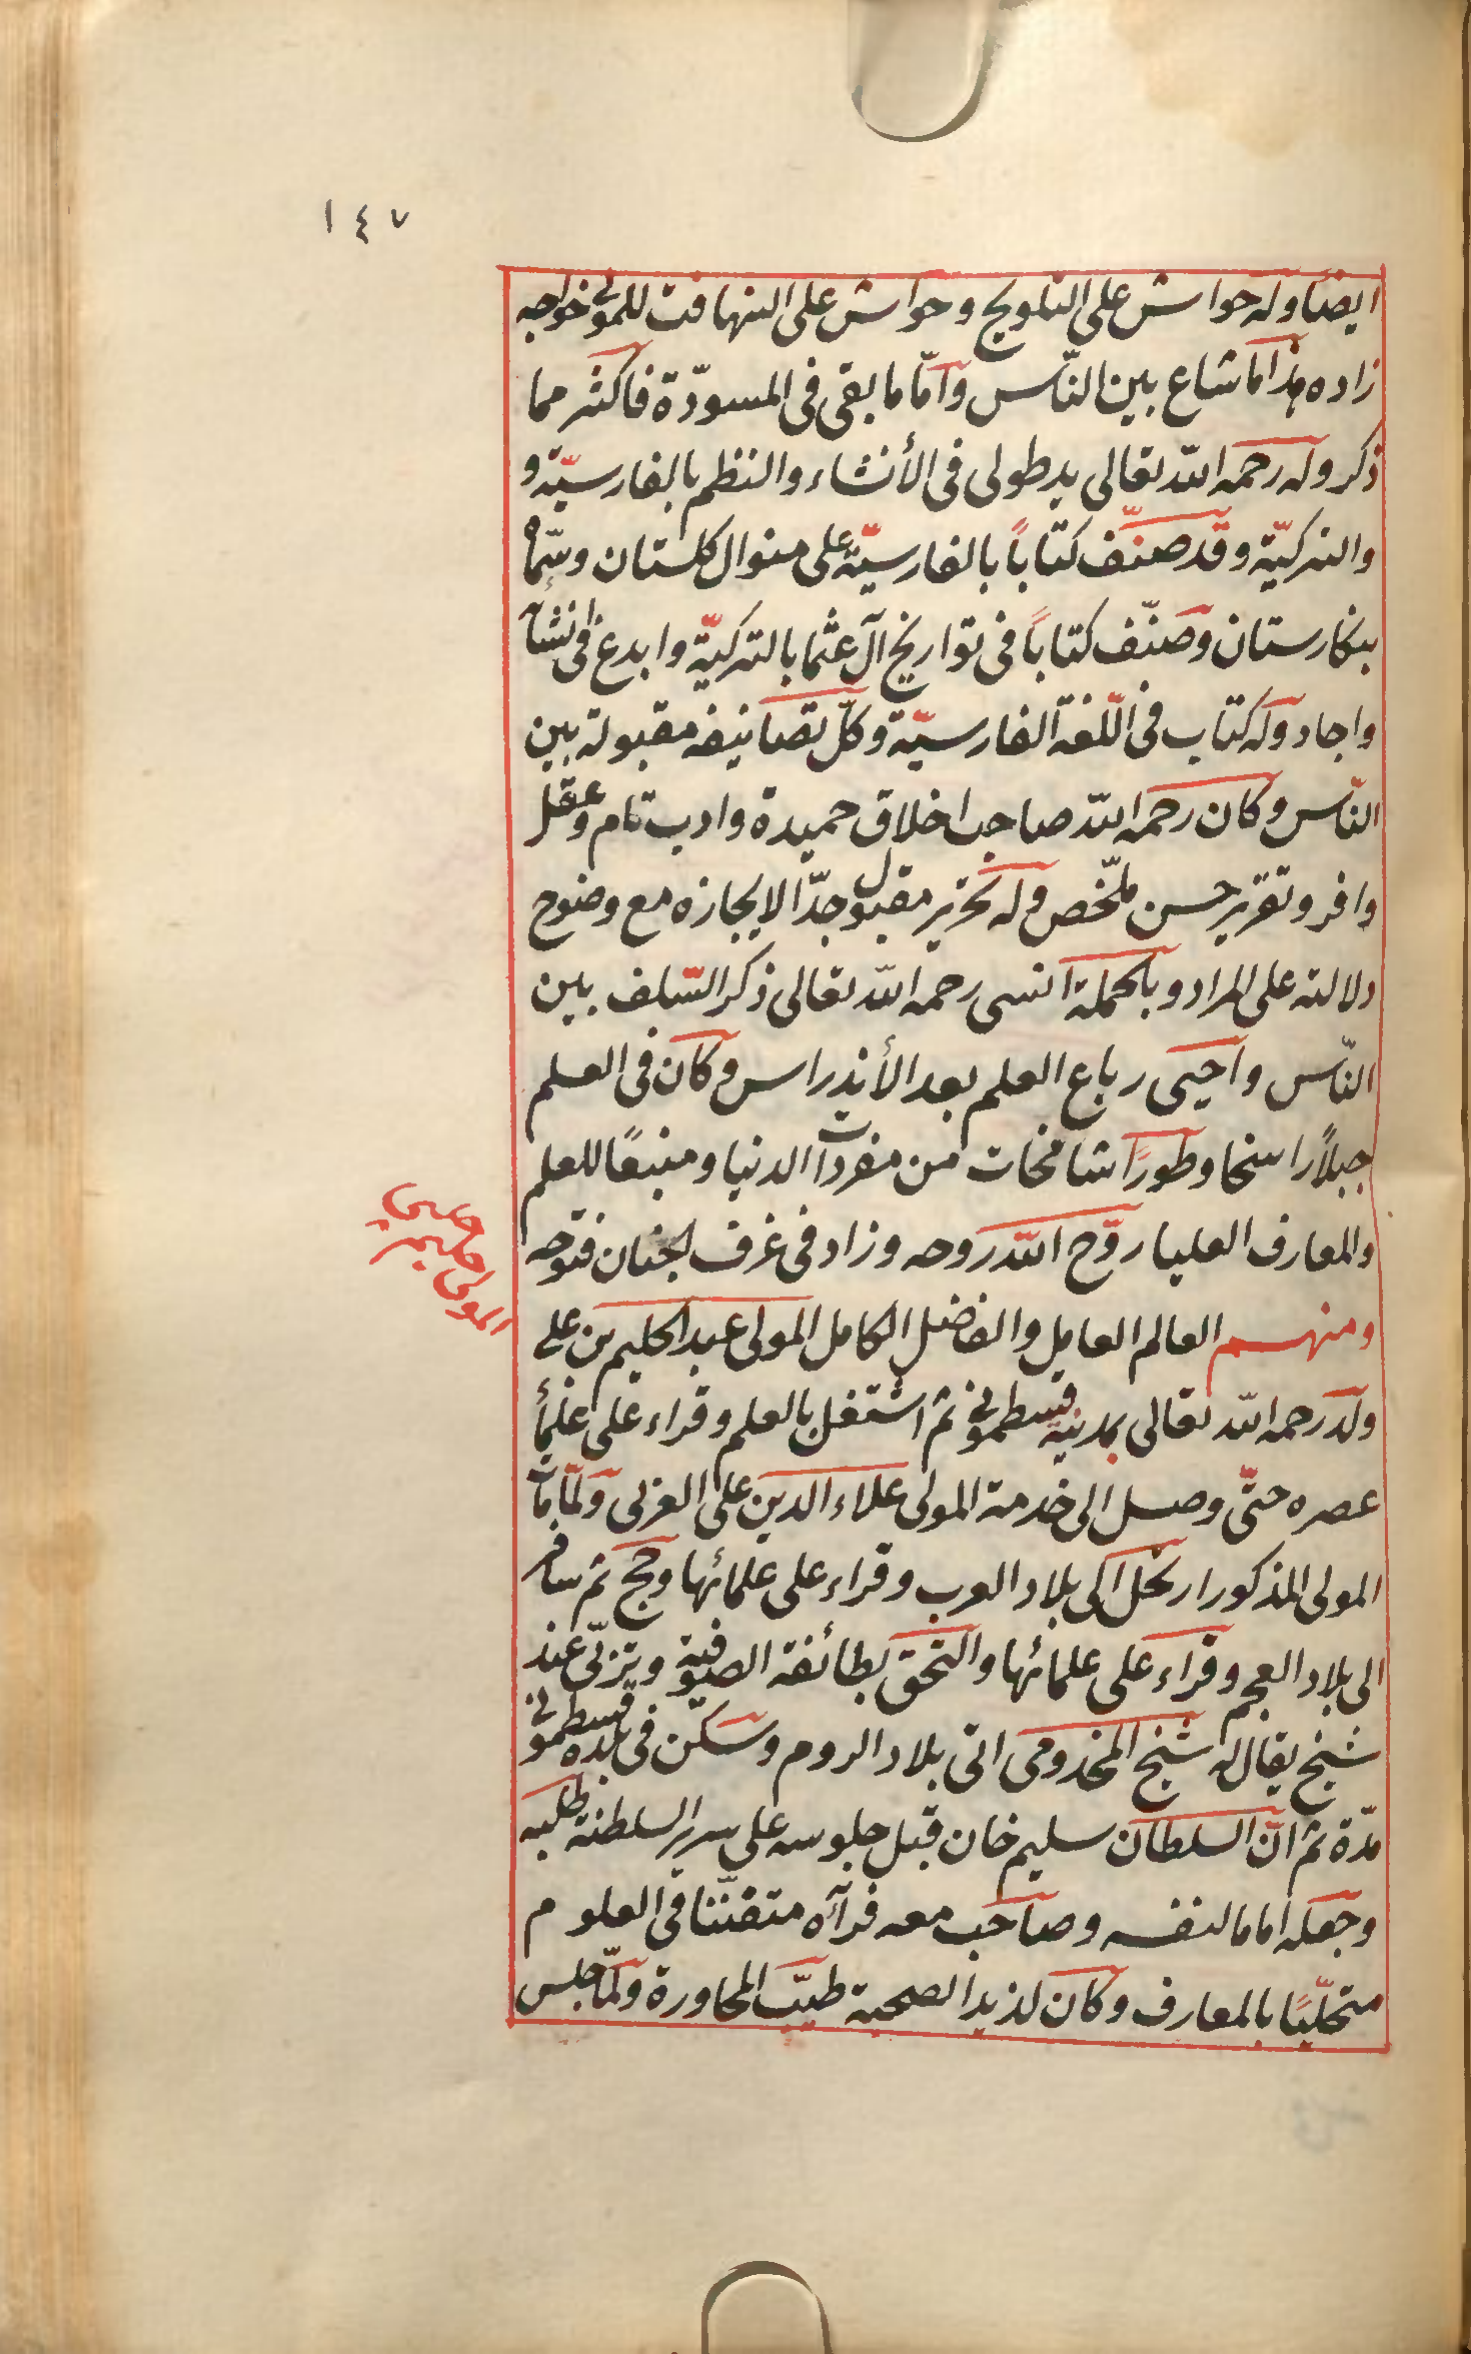 ١٤٧
ايضا وله حواش على التلويح وحواش على التهافت للمولى خواجه
زاده هذا ما شاع بين النّاس وامّا ما بقى فى المسودّة فاكثر مما
ذكر وله رحمه الله تعالى يد طولى فى الأنشاء والنظم بالفارسيّة و
والتركيّة وقد صنّف كتاباً بالفارسيّة على منوال كلستان وسمّاه
بنكارستان وصنّف كتاباً فى تواريخ آل عثما بالتركيّة وابدع فى انشآ
واجاد وله كتاب فى اللّغة الفارسيّة وكلّ تصانيفه مقبولة بين
النّاس وكان رحمه الله صاحب اخلاق حميدة وادب تام وعقل
وافر وتقرير حسن ملخّص وله تحرير مقبول جدّا الايجازه مع وضوح
دلالته على المراد وبالجملة انسى رحمه الله تعالى ذكر السّلف بين
النّاس واحيى رباع العلم بعد الأندراس وكان فى العلم
جبلاً راسخا وطوراً شامخات من مفردات الدنيا ومنبعًا للعلم
والمعارف العليا روّح الله روحه وزاد فى غرف الجنان فتوحه
ومنهم العالم العامل والفاضل الكامل المولى عبد الحليم بن على
المولى حليم چلبى
ولد رحمه الله تعالى بمدينة قسطمونى ثم اشتغل بالعلم وقراء على علمأ
عصره حتّى وصل الى خدمة المولى علاء الدين على العربى ولمّا مات
المولى المذكور ارتحل الى بلاد العرب وقراء على علمائها وحج ثم سافر
الى بلاد العجم وقراء على علمائها والتحق بطائفة الصوفية وتربّى عند
شيخ يقال له شيخ المخدومى اتى بلاد الروم وسكن فى بلده قسطمونى
مدّة ثم انّ السلطان سليم خان قبل جلوسه على سرير السلطنة طلبه
وجعله اماما لنفسه وصاحب معه فرآه متفنّنا فى العلوم
متحلّيًا بالمعارف وكان لذيذ الصحبة طيّب المحاورة ولمّا جلس